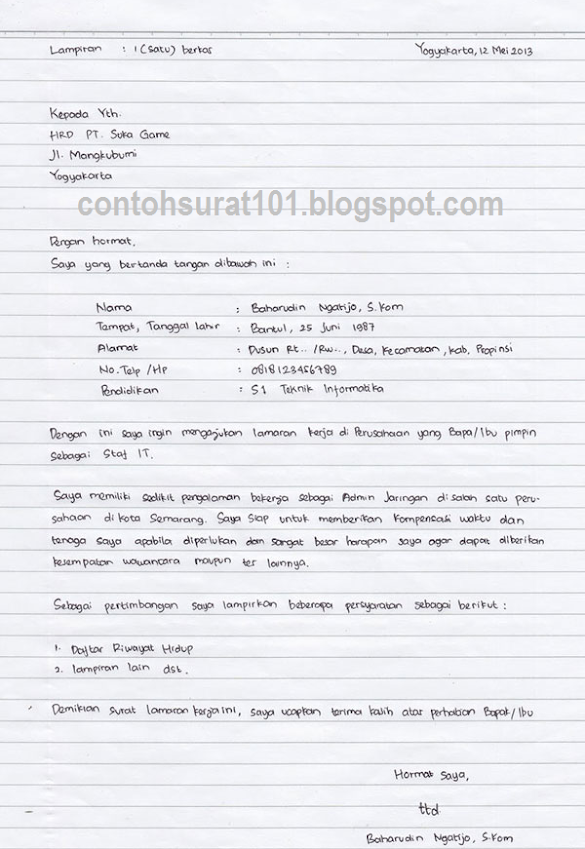 Lampiran : 1 (satu) berkas Yogyakarta, 12 Mei 2013
Kepada Yth.
HRD PT. Suka Game
Jl. Mangkubumi
Yogyakarta
contohsurat101.blogspot.com
Dengan hormat,
Saya yang bertanda tangan dibawah ini :
Nama : Baharudin Ngatijo, S.Kom
Tempat, Tanggal lahir : Bantul, 25 Juni 1987
Alamat : Dusun Rt.. /Rw.., Desa, Kecamatan, Kab, Propinsi
No. Telp /Hp : 0818123456789
Pendidikan : S1 Teknik Informatika
Dengan ini saya ingin mengajukan lamaran kerja di Perusahaan yang Bapa/Ibu pimpin
sebagai Staf IT.
Saya memiliki sedikit pengalaman bekerja sebagai Admin Jaringan di salah satu peru-
sahaan di kota Semarang. Saya Siap untuk memberikan kompensasi waktu dan
tenaga saya apabila diperlukan dan sangat besar harapan saya agar dapat diberikan
kesempatan wawancara maupun tes lainnya.
Sebagai pertimbangan saya lampirkan beberapa persyaratan sebagai berikut :
1. Daftar Riwayat Hidup
2. lampiran lain dst.
Demikian surat lamaran kerja ini, saya ucapkan terima kasih atas perhatian Bapak/Ibu
Hormat Saya,
ttd
Baharudin Ngatijo, S.Kom